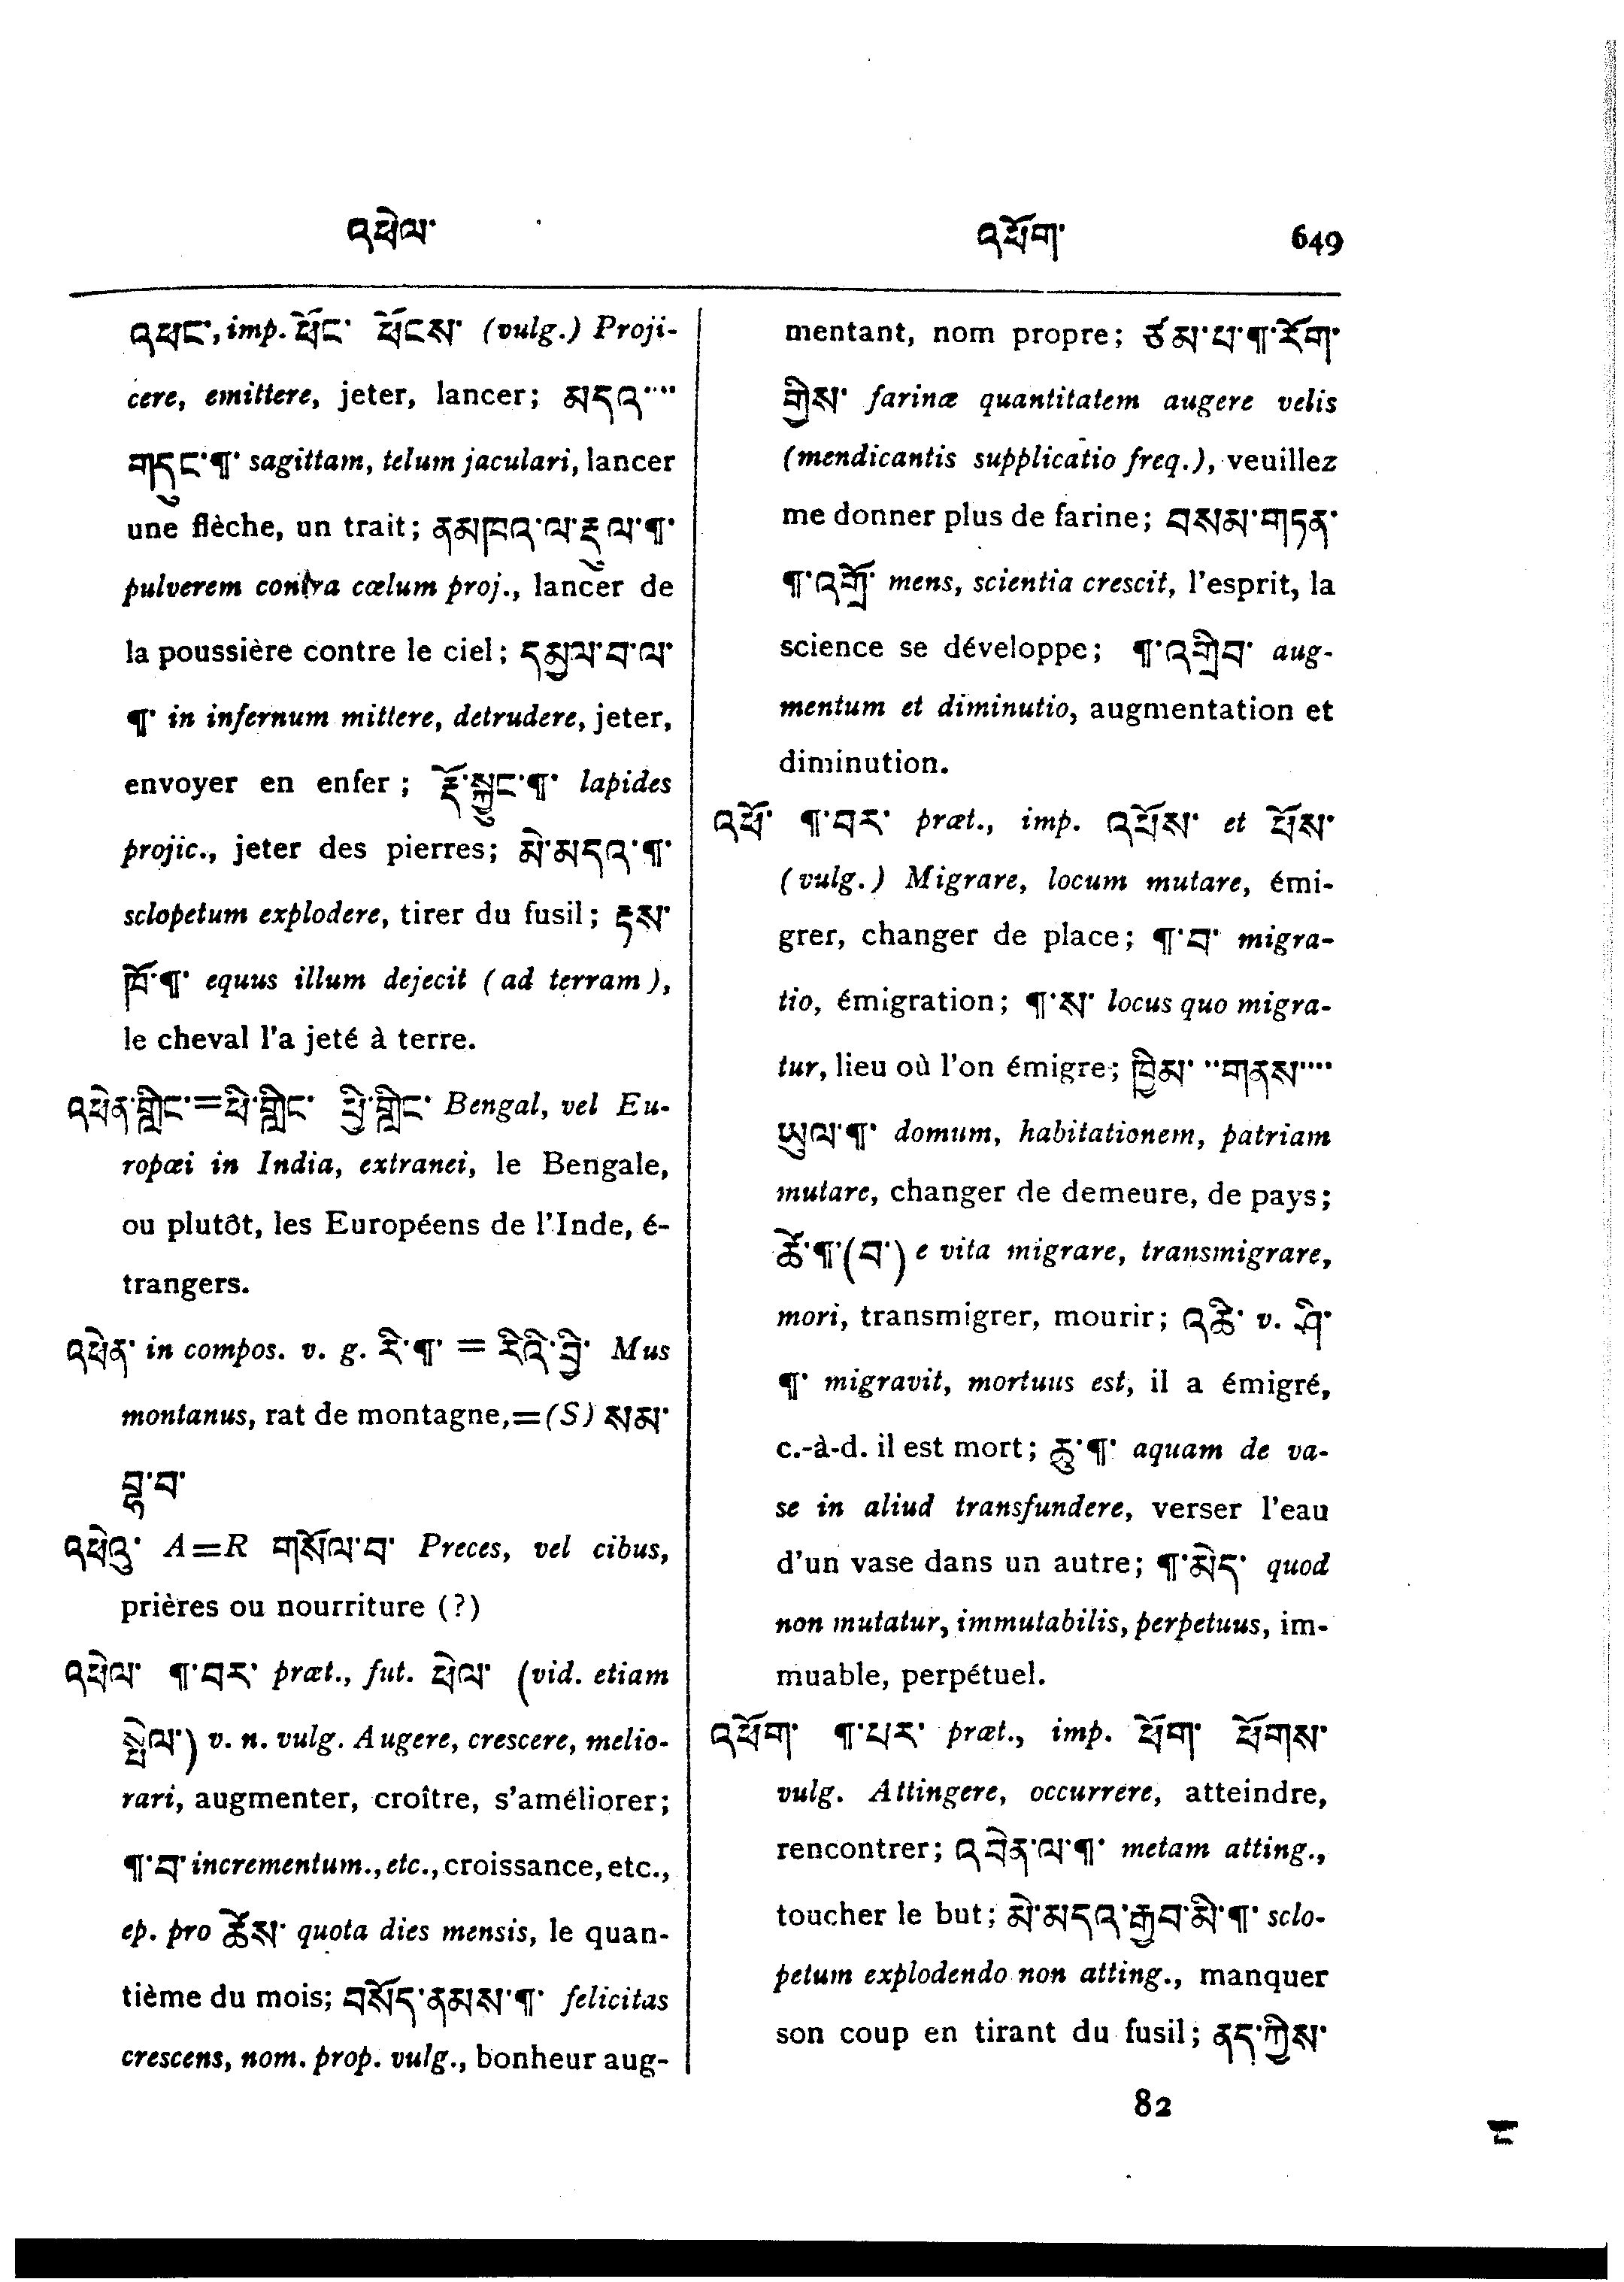 འཕེལ་
འཕོག་ 649
འཕང་, imp. ཕོང་ ཕོངས་ (vulg.) Proji-
cere, emittere, jeter, lancer; མདའ་་་་
གདུང་¶་ sagittam, telum jaculari, lancer
une flèche, un trait; ནམཁའ་ལ་རྡུལ་¶་
pulverem contra cœlum proj., lancer de
la poussière contre le ciel; དམྱལ་བ་ལ་
¶་ in infernum mittere, detrudere, jeter,
envoyer en enfer; རྡོ་སྐྱུང་¶་ lapides
projic., jeter des pierres; མེ་མདའ་¶་
sclopetum explodere, tirer du fusil; རྟས་
ཁོ་¶་ equus illum dejecit (ad terram),
le cheval l'a jeté à terre.
འཕེན་གླིང་=ཕི་གླིང་ ཕྱི་གླིང་ Bengal, vel Eu-
ropæi in India, extranei, le Bengale,
ou plutôt, les Européens de l'Inde, é-
trangers.
འཕེན་ in compos. v. g. རི་¶་ = རིའི་བྱི་ Mus
montanus, rat de montagne,=(S) སམ་
བྷ་བ་
འཕེའུ་ A=R གསོལ་བ་ Preces, vel cibus,
prières ou nourriture (?)
འཕེལ་ ¶་བར་ præt., fut. ཕེལ་ (vid. etiam
སྤེལ་) v. n. vulg. Augere, crescere, melio-
rari, augmenter, croître, s'améliorer;
¶་བ་ incrementum., etc., croissance, etc.,
ep. pro ཚེས་ quota dies mensis, le quan-
tième du mois; བསོད་ནམས་¶་ felicitas
crescens, nom. prop. vulg., bonheur aug-
mentant, nom propre; ཙམ་པ་¶་རོག་
གྱིས་ farinæ quantitatem augere velis
(mendicantis supplicatio freq.), veuillez
me donner plus de farine; བསམ་གཏན་
¶་འགྲོ་ mens, scientia crescit, l'esprit, la
science se développe; ¶་འགྲིབ་ aug-
mentum et diminutio, augmentation et
diminution.
འཕོ་ ¶་བར་ præt., imp. འཕོས་ et ཕོས་
(vulg.) Migrare, locum mutare, émi-
grer, changer de place; ¶་བ་ migra-
tio, émigration; ¶་ས་ locus quo migra-
tur, lieu où l'on émigre; ཁྱིམ་ ་་གནས་་་་
ཡུལ་¶་ domum, habitationem, patriam
mutare, changer de demeure, de pays;
ཚེ་¶་(བ་) e vita migrare, transmigrare,
mori, transmigrer, mourir; འཆི་ v. ཤི་
¶་ migravit, mortuus est, il a émigré,
c.-à-d. il est mort; ཆུ་¶་ aquam de va-
se in aliud transfundere, verser l'eau
d'un vase dans un autre; ¶་མེད་ quod
non mutatur, immutabilis, perpetuus, im-
muable, perpétuel.
འཕོག་ ¶་པར་ præt., imp. ཕོག་ ཕོགས་
vulg. Attingere, occurrere, atteindre,
rencontrer; འབེན་ལ་¶་ metam atting.,
toucher le but; མེ་མདའ་རྒྱབ་མི་¶་ sclo-
petum explodendo non atting., manquer
son coup en tirant du fusil; ནད་ཀྱིས་
82